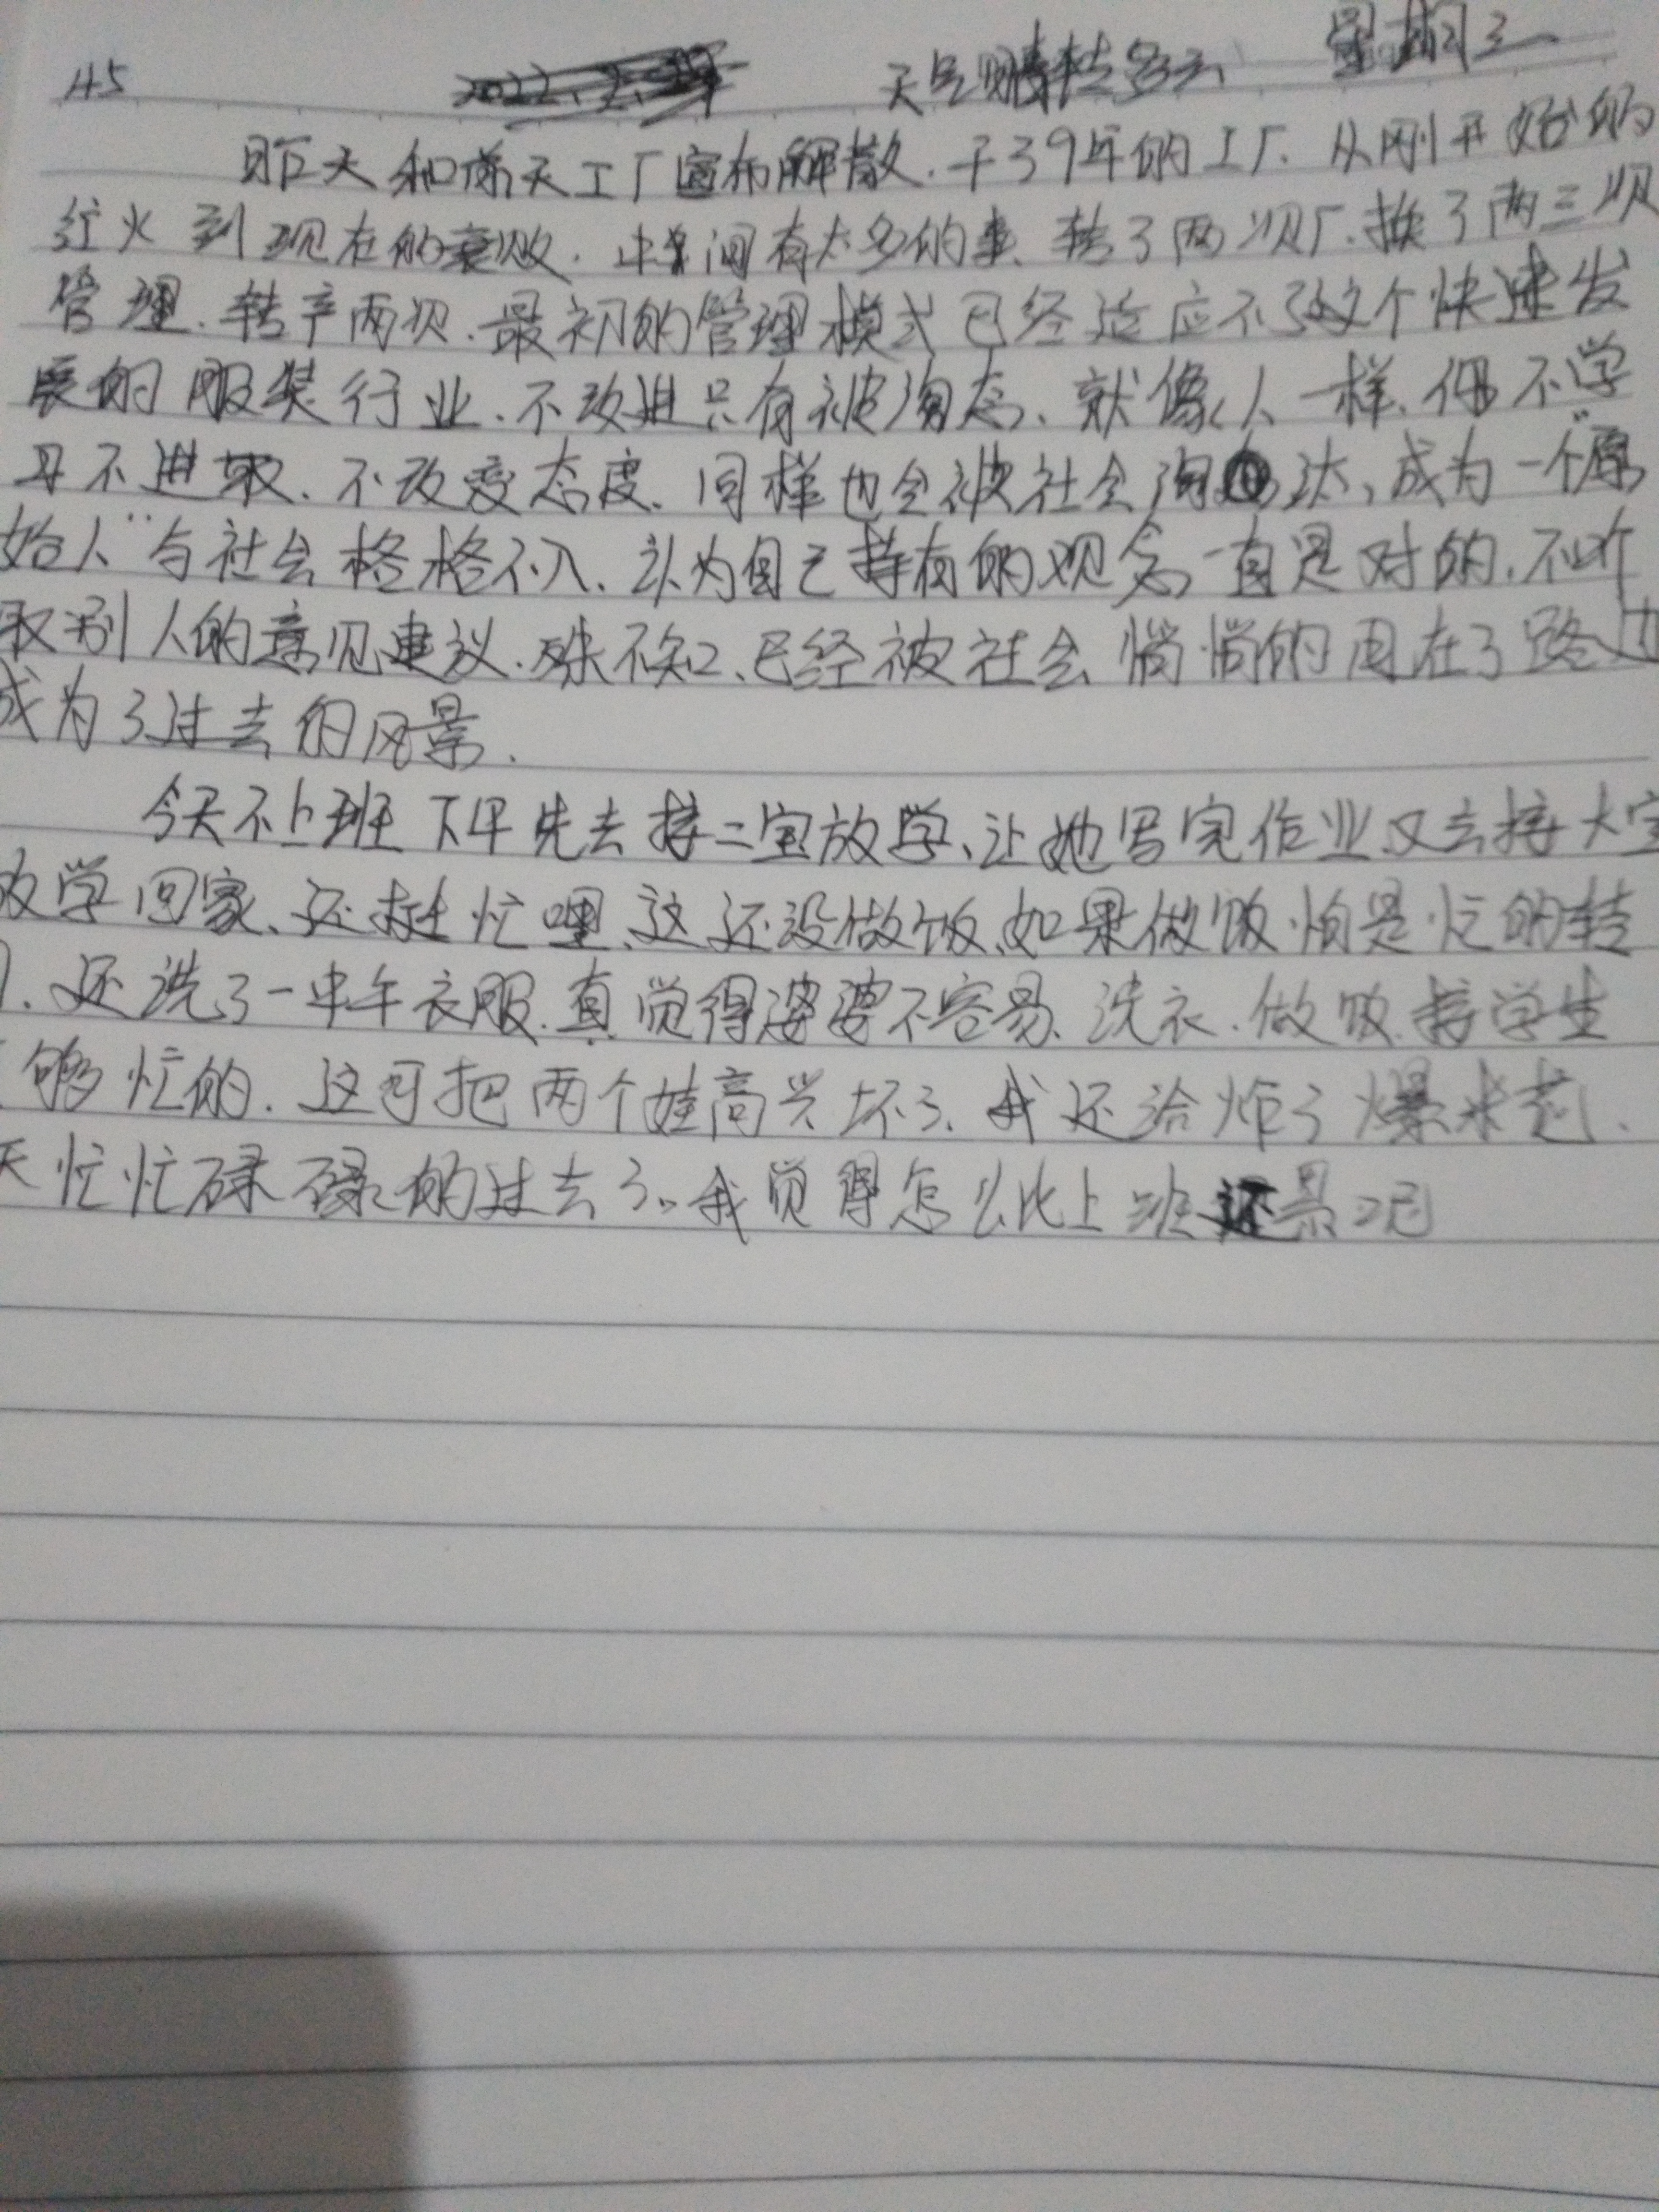 145 天气晴转多云 星期三
昨天和前天工厂宣布解散.干了9年的工厂.从刚开始的
红火到现在的衰败.中间有太多的事.转了两次厂.换了两三次
管理.转产两次.最初的管理模式已经适应不了这个快速发
展的服装行业.不改进只有被淘态、就像人一样.
习不进取.不改变态度.同样也会被社会淘汰、成为一个"原
始人"与社会格格不入.认为自己持有的观念一直是对的.不听
取别人的意见建议.殊不知、已经被社会悄悄的甩在了路边
成为了过去的风景.
今天不上班下午先去接二宝放学、让她写完作业又去接大宝
放学回家、还挺忙哩、这还没做饭、如果做饭怕是忙的转
.还洗了一中午衣服.真觉得婆婆不容易、洗衣.做饭.接学生
够忙的.这可把两个娃高兴坏了.我还给炸了爆米花.
天忙忙碌碌的过去了。我觉得怎么比上班还累呢